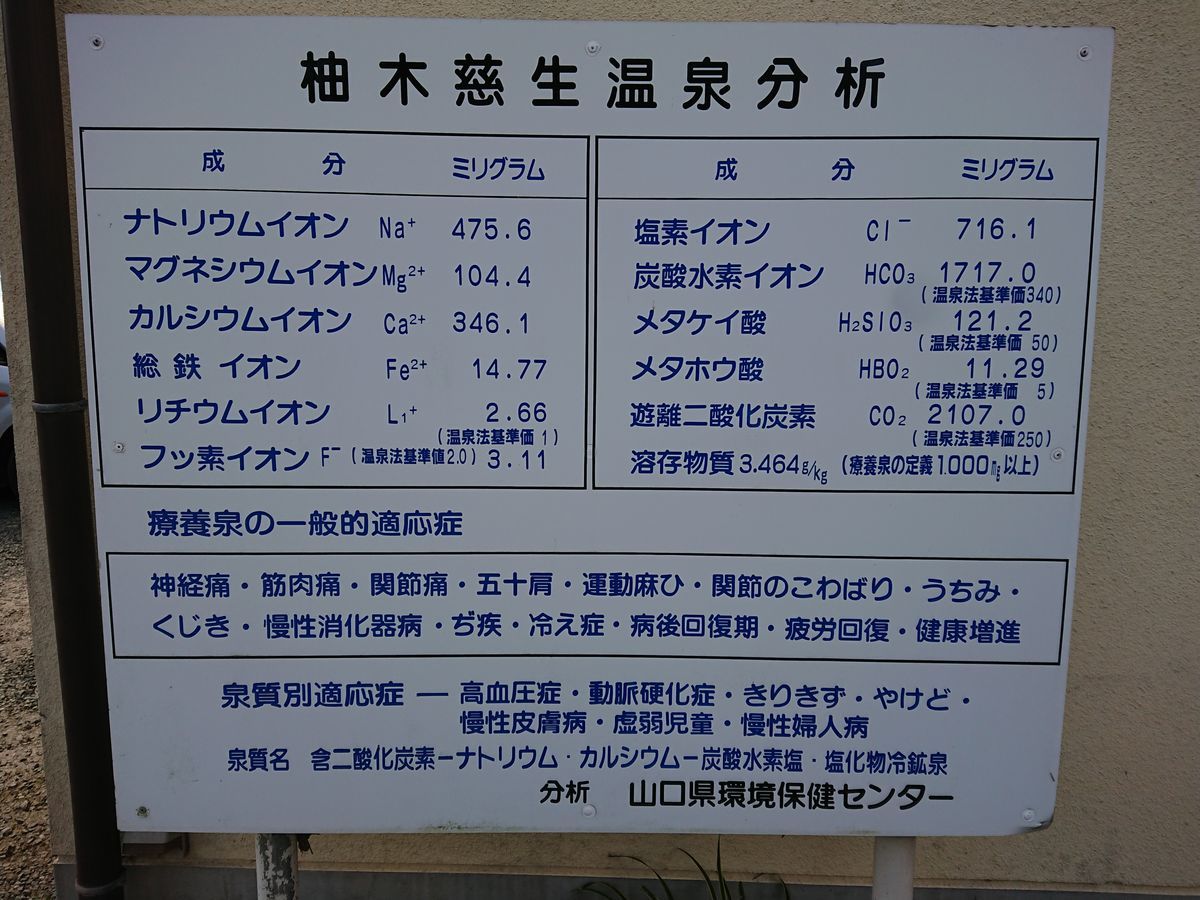 柚木慈生温泉分析
成分 ミリグラム
ナトリウムイオン Na⁺ 475.6
マグネシウムイオン Mg²⁺ 104.4
カルシウムイオン Ca²⁺ 346.1
総鉄イオン Fe²⁺ 14.77
リチウムイオン L₁⁺ 2.66
(温泉法基準価 1)
フッ素イオン F⁻ (温泉法基準値2.0) 3.11
成分 ミリグラム
塩素イオン Cl⁻ 716.1
炭酸水素イオン HCO₃ 1717.0
(温泉法基準価340)
メタケイ酸 H₂SIO₃ 121.2
(温泉法基準価 50)
メタホウ酸 HBO₂ 11.29
(温泉法基準価 5)
遊離二酸化炭素 CO₂ 2107.0
(温泉法基準価250)
溶存物質 3.464g/kg (療養泉の定義1.000mg以上)
療養泉の一般的適応症
神経痛・筋肉痛・関節痛・五十肩・運動麻ひ・関節のこわばり・うちみ・
くじき・慢性消化器病・ぢ疾・冷え症・病後回復期・疲労回復・健康増進
泉質別適応症 ― 高血圧症・動脈硬化症・きりきず・やけど・
慢性皮膚病・虚弱児童・慢性婦人病
泉質名 含二酸化炭素－ナトリウム・カルシウム－炭酸水素塩・塩化物冷鉱泉
分析 山口県環境保健センター